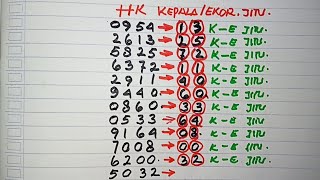 HK KEPALA/EKOR.JITU.
0954→13 K-E JITU.
2613→25 K-E JITU.
5825→72 K-E JITU.
6372→11 K-E JITU.
2911→40 K-E JITU.
9440→60 K-E JITU.
0860→33 K-E JITU.
0533→64 K-E JITU.
9164→08 K-E JITU.
7008→00 K-E JITU.
6200→32 K-E JITU.
5032→